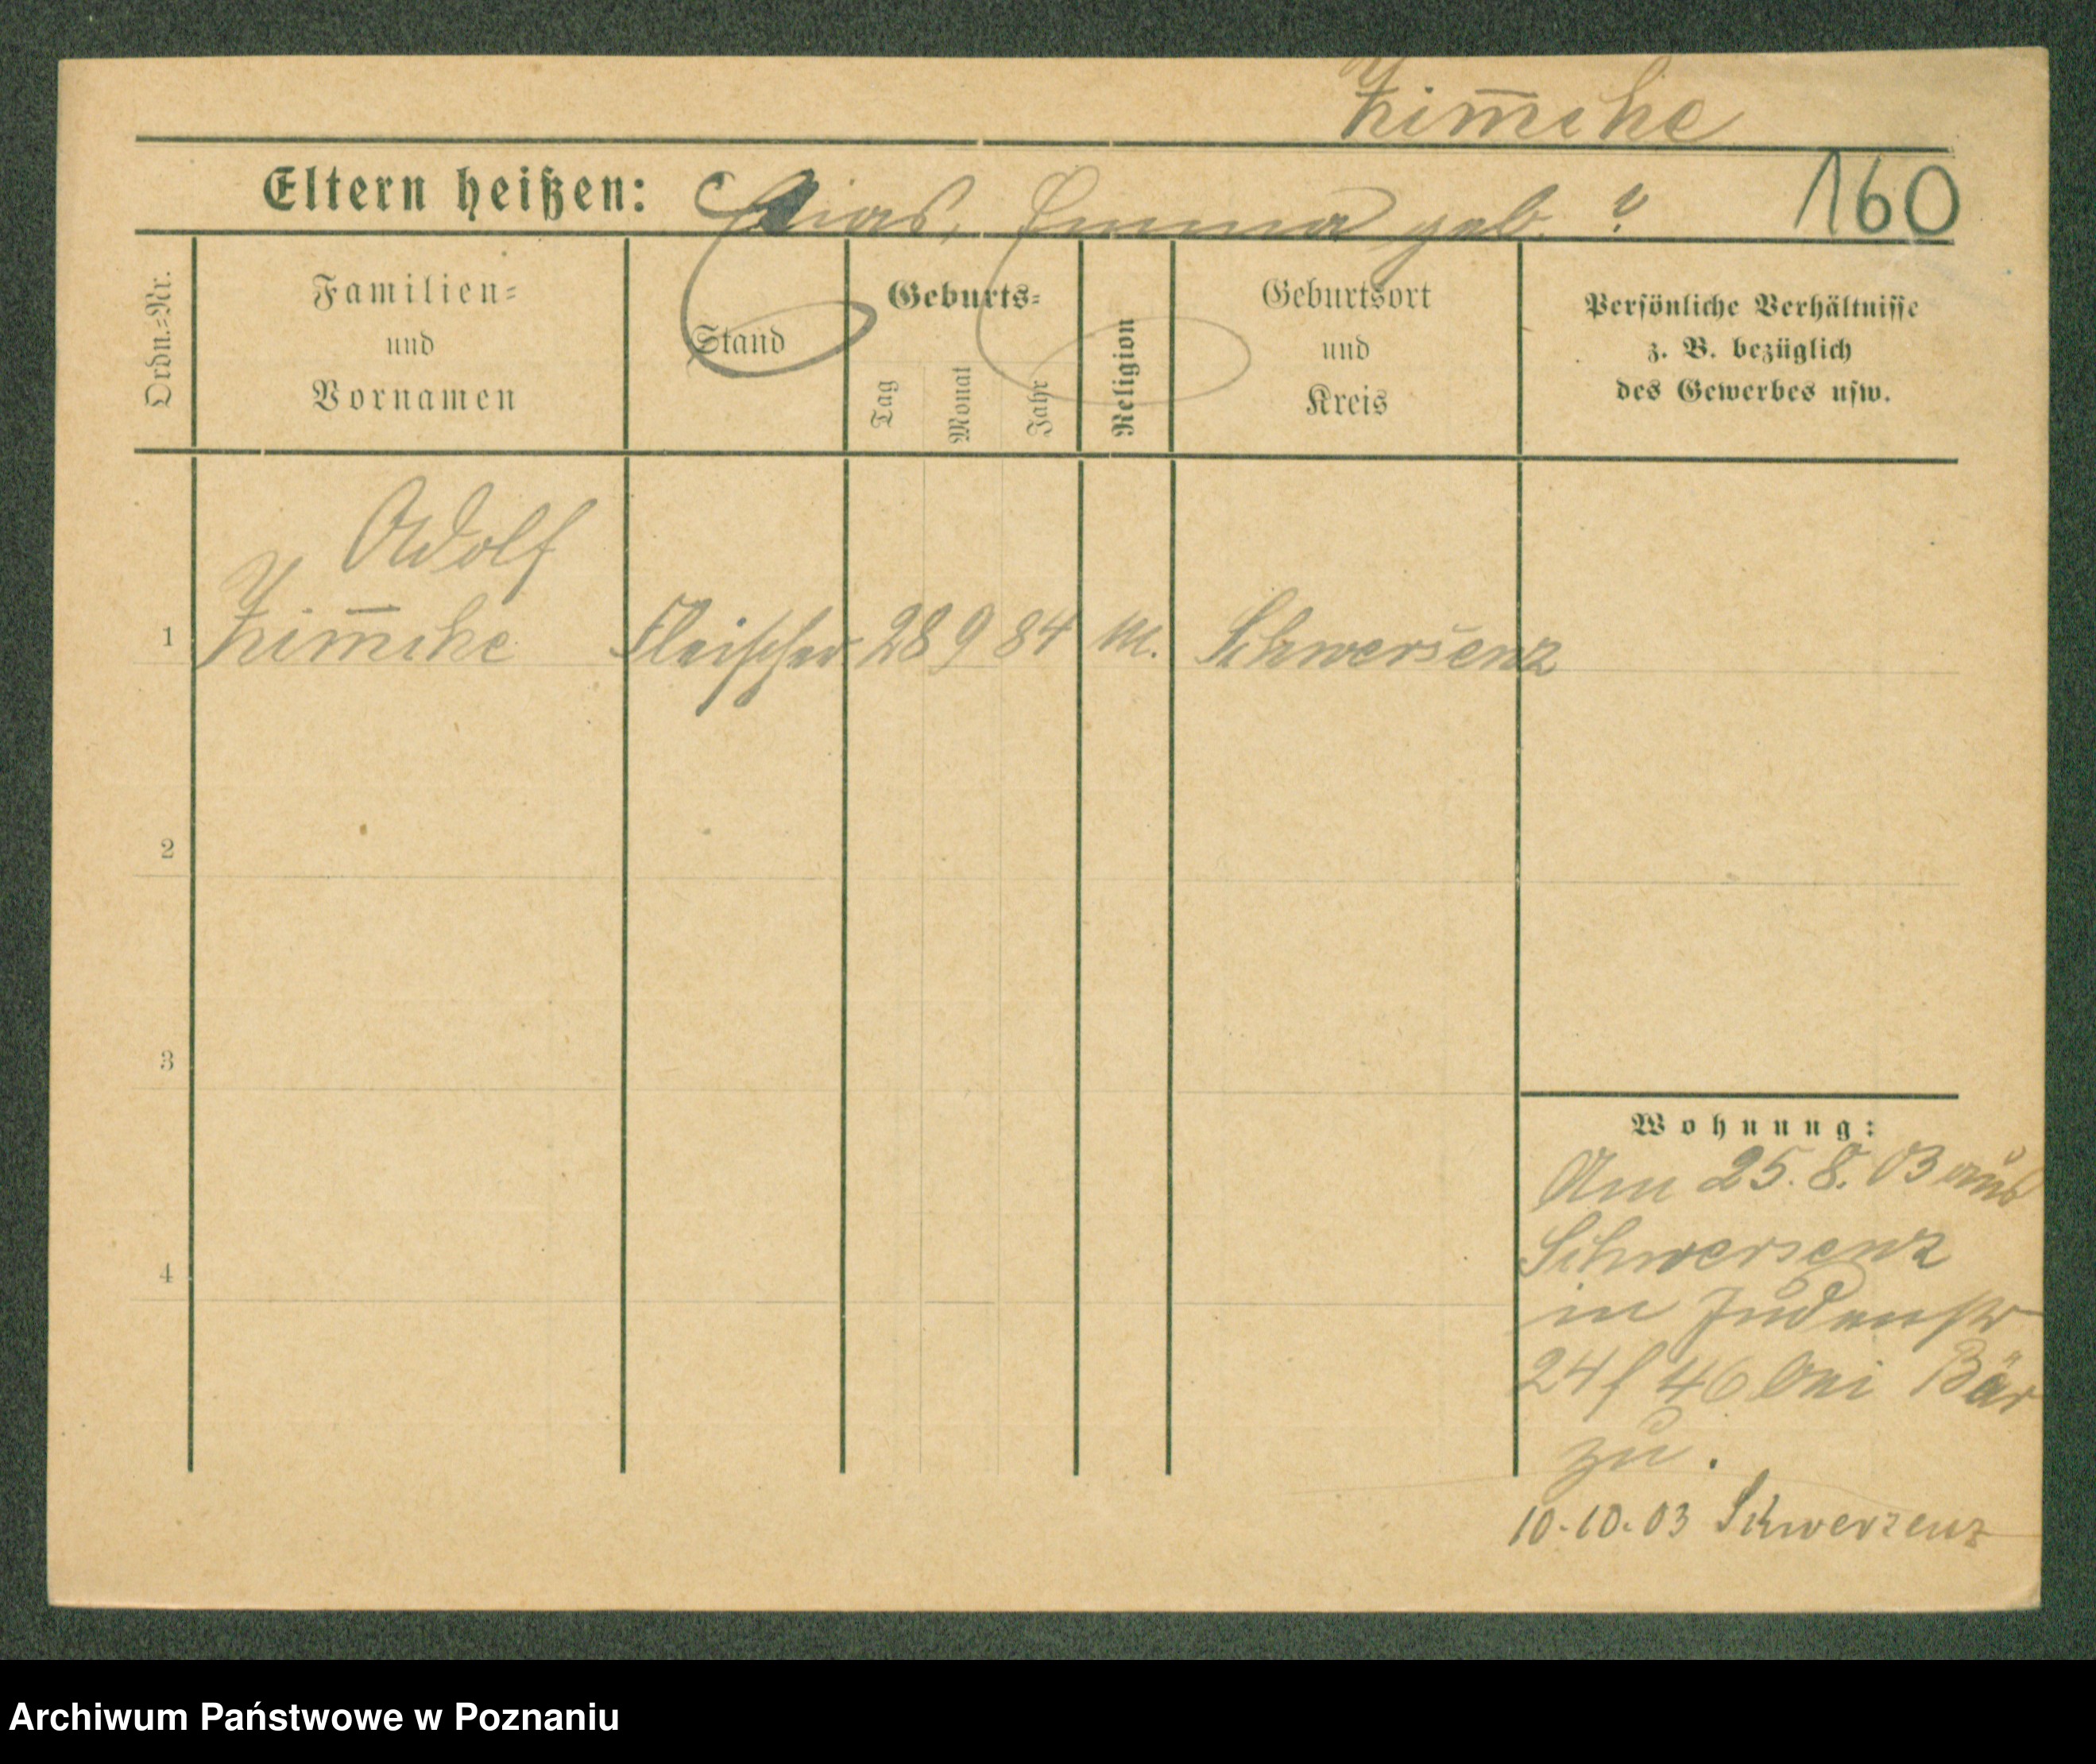 Zim̅che
Eltern heißen: Elias, Emma geb. ? 160
Ordn.-Nr.
Familien-
und
Vornamen
Stand
Geburts-
Tag
Monat
Jahr
Religion
Geburtsort
und
Kreis
Persönliche Verhältnisse
z. B. bezüglich
des Gewerbes usw.
Adolf
1 Zim̅che Fleischer 28 9 84 m. Schwersenz
2
3
4
Wohnung:
Am 25.8.03 aus
Schwersenz
in Judenstr
24 f 46 bei Bär
zu.
10.10.03 Schwersenz
Archiwum Państwowe w Poznaniu